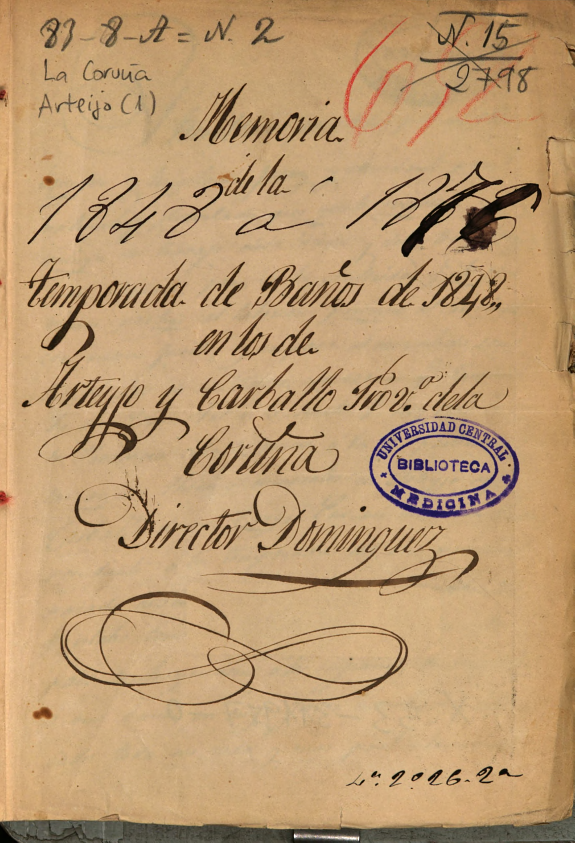 83-8-A = N. 2
N. 15
2798
La Coruña
Arteijo (1)
Memoria
de la
1848 a 1878
temporada de Baños de 1848,,
en los de
Arteyjo y Carballo Prov.ª de la
Coruña
UNIVERSIDAD CENTRAL
BIBLIOTECA
MEDICINA
Director Dominguez
4ª 2º 26-2ª